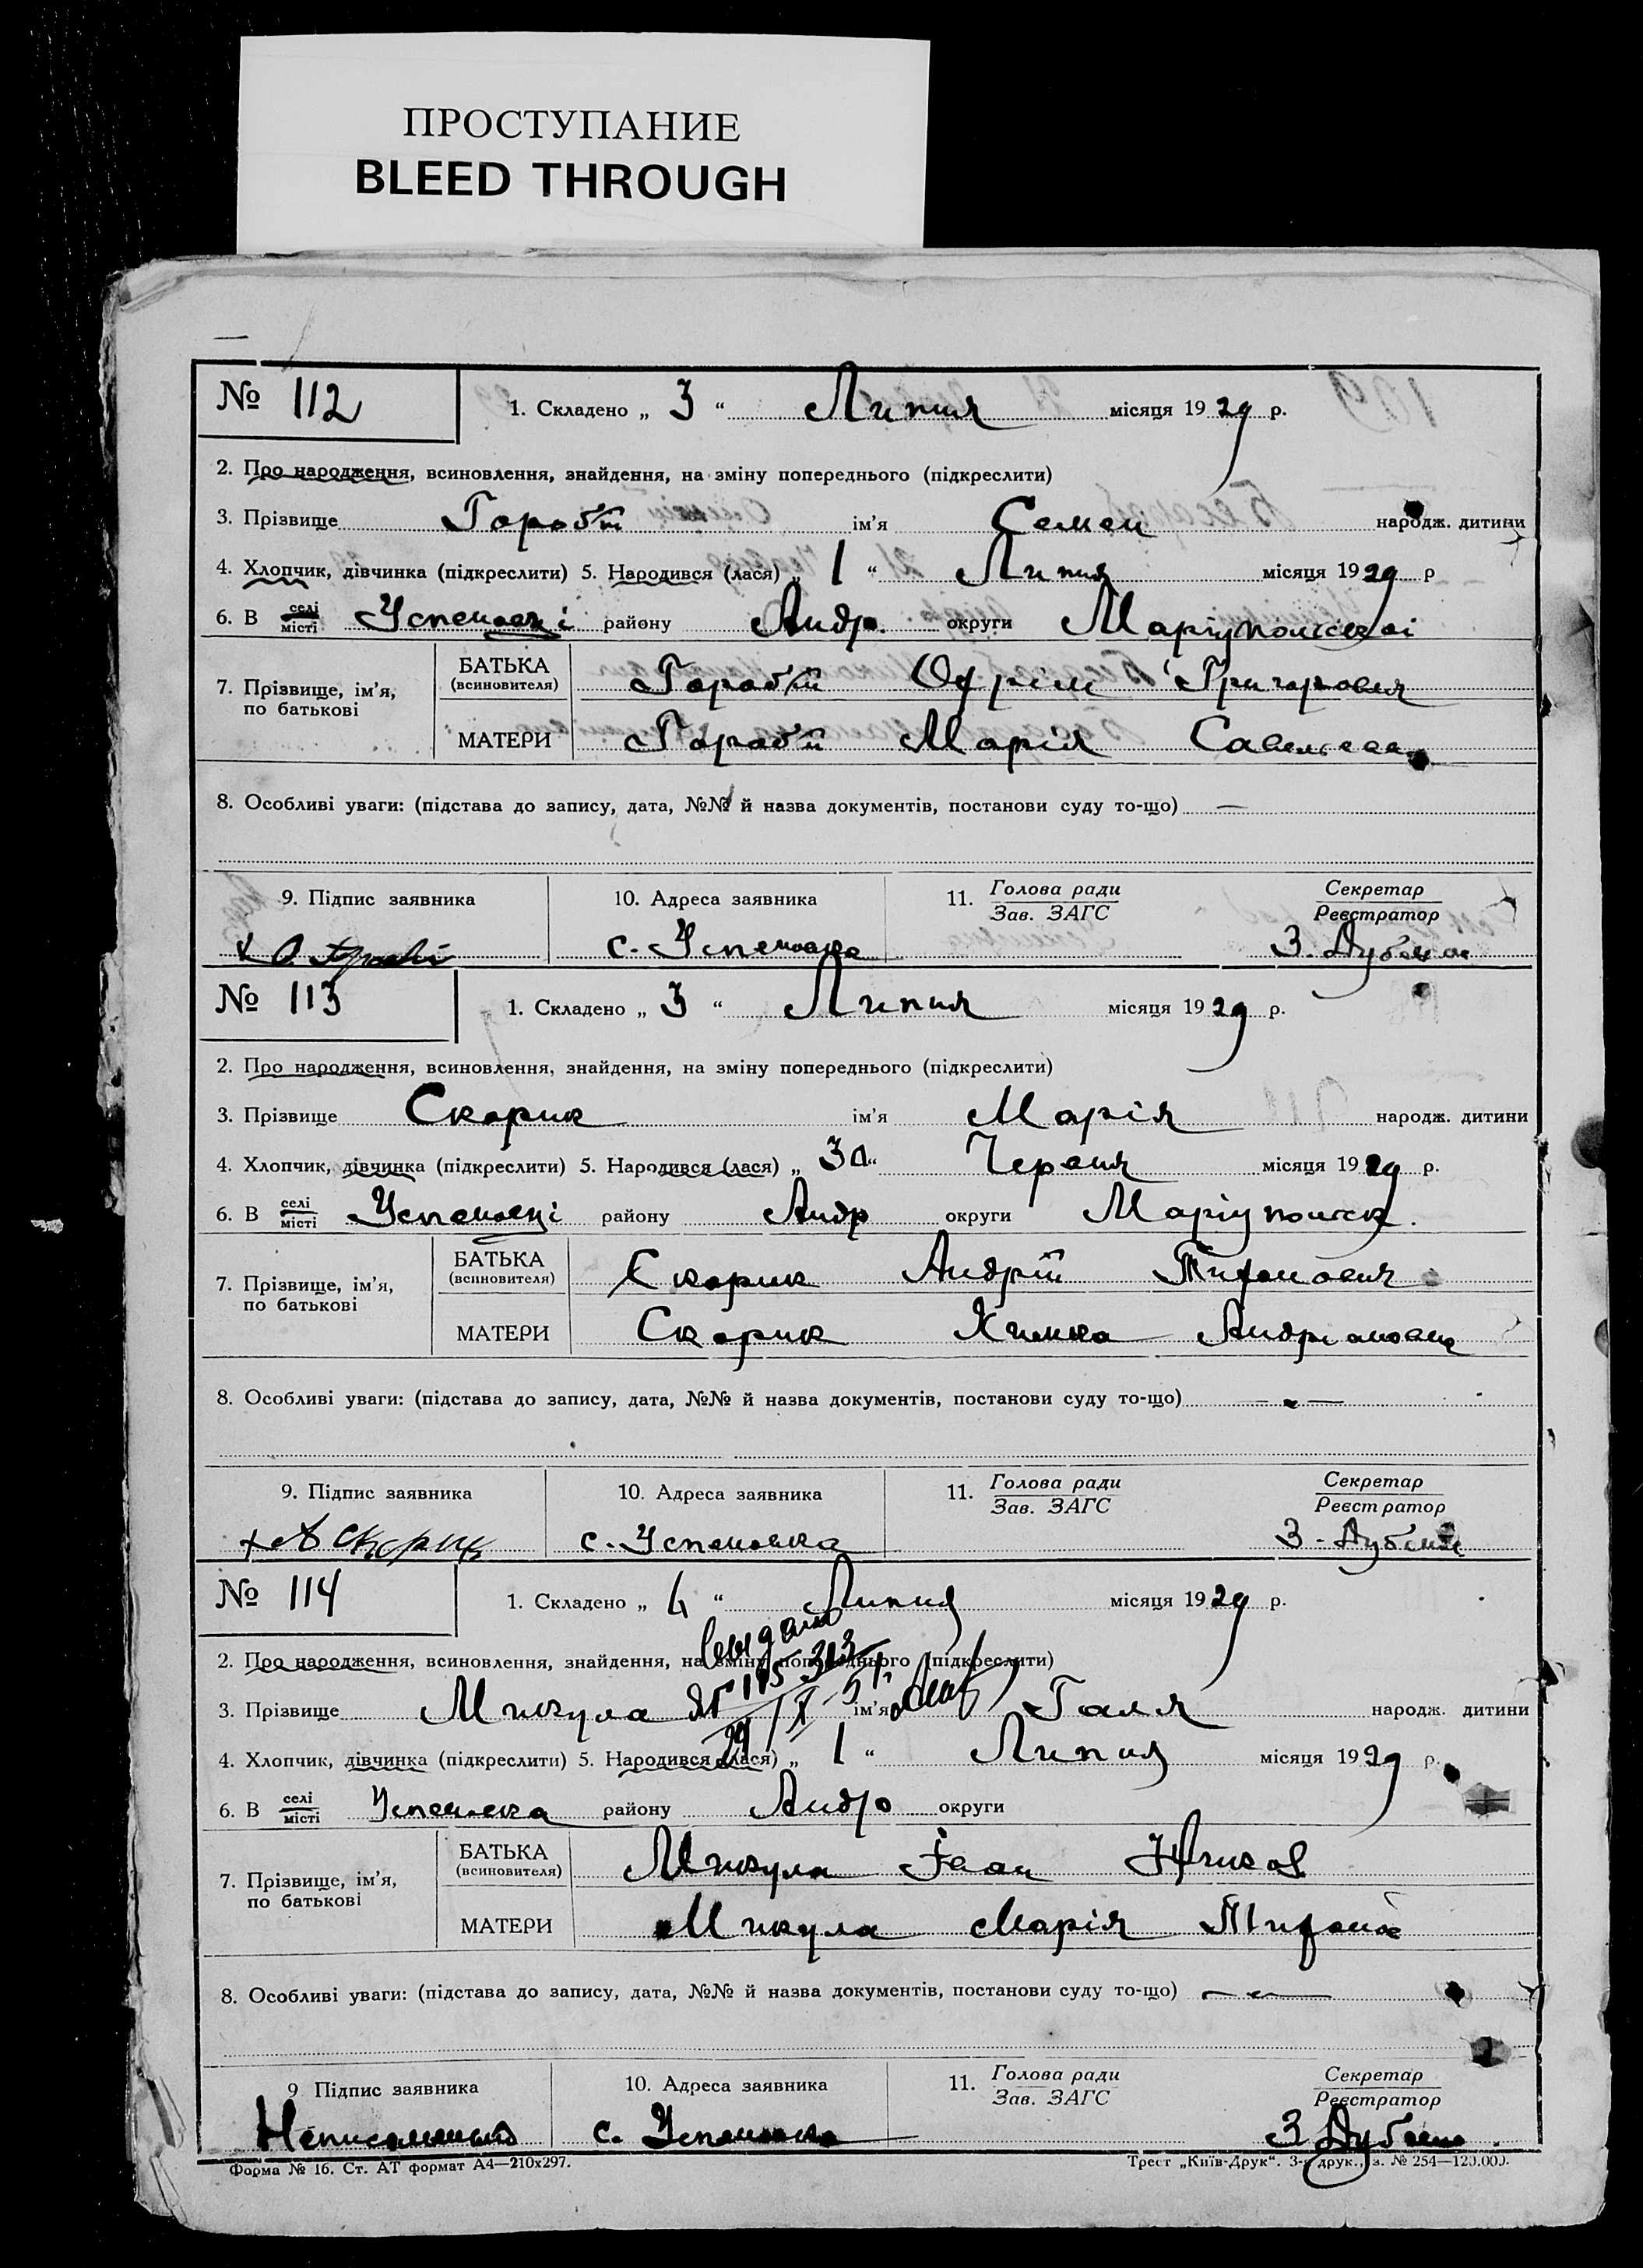 ПРОСТУПАНИЕ
BLEED THROUGH
№ 112
1. Складено „ 3 “ Липня місяця 1929 р.
2. Про народження, всиновлення, знайдення, на зміну попереднього (підкреслити)
3. Прізвище Горобій ім’я Семен народж. дитини
4. Хлопчик, дівчинка (підкреслити) 5. Народився (лася) „ 1 “ Липня місяця 1929 р
6. В селі місті Успеновці району Андр. округи Маріупольської
7. Прізвище, ім’я, по батькові
БАТЬКА (всиновителя) Горобій Офрім Григорович
МАТЕРИ Горобій Марія Савельевна
8. Особливі уваги: (підстава до запису, дата, №№ й назва документів, постанови суду то-що) —
9. Підпис заявника 10. Адреса заявника 11. Голова ради Зав. ЗАГС Секретар Реєстратор
с. Успеновка З.
№ 113
1. Складено „ 3 “ Липня місяця 1929 р.
2. Про народження, всиновлення, знайдення, на зміну попереднього (підкреслити)
3. Прізвище Скорик ім’я Марія народж. дитини
4. Хлопчик, дівчинка (підкреслити) 5. Народився (лася) „ 30 “ Червня місяця 1929 р.
6. В селі місті Успеновці району Андр округи Маріупольськ.
7. Прізвище, ім’я, по батькові
БАТЬКА (всиновителя) Скорик Андрій Тифонович
МАТЕРИ Скорик Химка Андріановна
8. Особливі уваги: (підстава до запису, дата, №№ й назва документів, постанови суду то-що) — „ —
9. Підпис заявника 10. Адреса заявника 11. Голова ради Зав. ЗАГС Секретар Реєстратор
+ А Скорик с. Успеновка З.
№ 114
1. Складено „ 4 “ Липня місяця 1929 р.
2. Про народження, всиновлення, знайдення, на зміну попереднього (підкреслити)
3. Прізвище Микула ім’я Галя народж. дитини
4. Хлопчик, дівчинка (підкреслити) 5. Народився (лася) „ 1 “ Липня місяця 1929 р.
6. В селі місті Успеновка району Андр округи
7. Прізвище, ім’я, по батькові
БАТЬКА (всиновителя) Микула Іван
МАТЕРИ Микула Марія Тифонов
8. Особливі уваги: (підстава до запису, дата, №№ й назва документів, постанови суду то-що) — „ —
9 Підпис заявника 10. Адреса заявника 11. Голова ради Зав. ЗАГС Секретар Реєстратор
Неписьменний с. Успеновка З
Форма № 16. Ст. АТ формат А4—210x297. Трест „Київ-Друк“. 3-я друк., з. № 254—120.000.